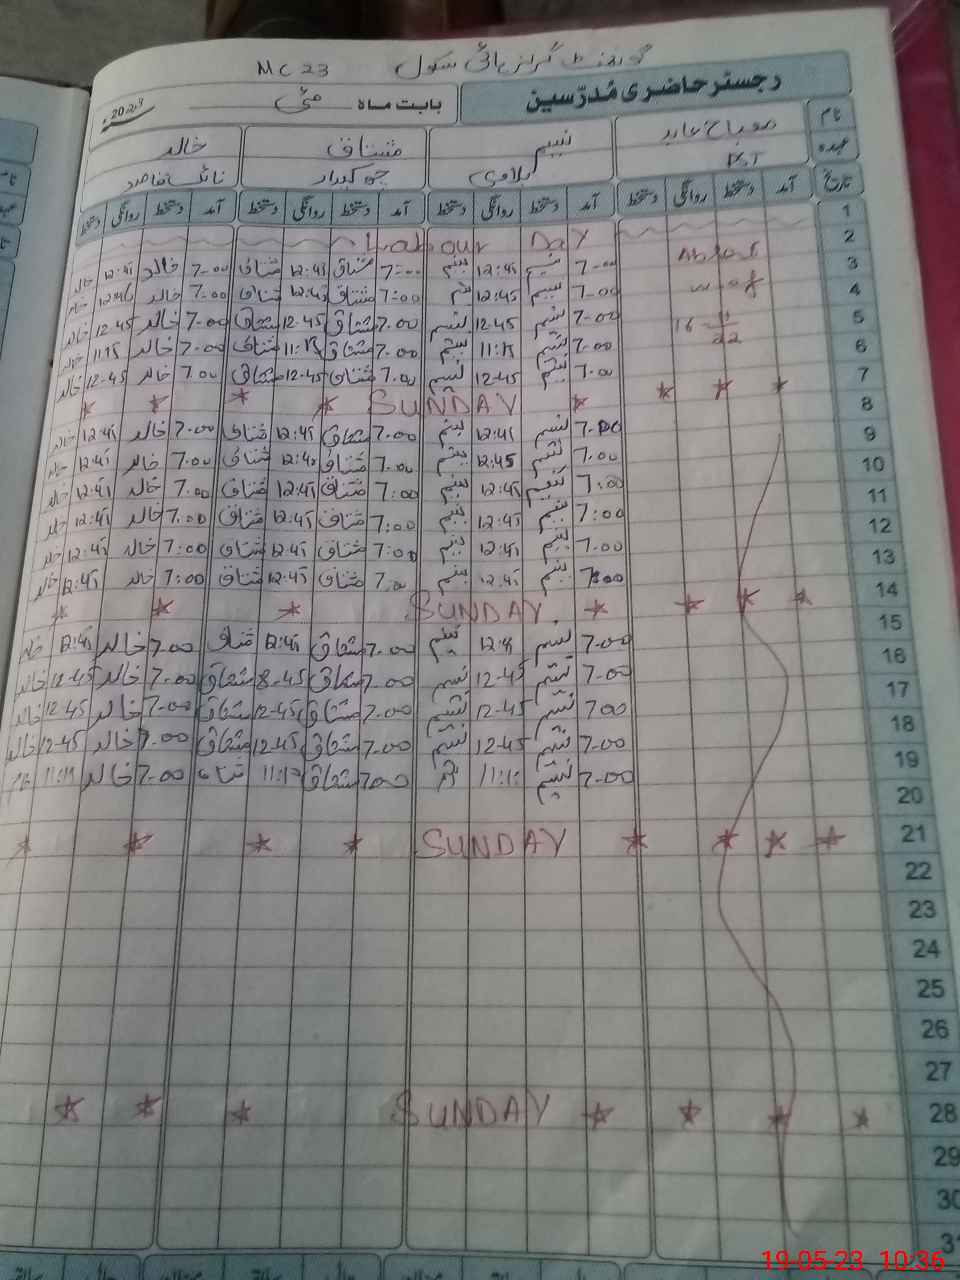 گورنمنٹ گرلز ہائی سکول MC 23
رجسٹر حاضری مُدرّسین
بابت ماہ مئی 2023ء
نام مصباح عابد نسیم مشتاق خالد
عہدہ PST بلاوی چوکیدار نائب قاصد
تاریخ آمد دستخط روانگی دستخط آمد دستخط روانگی دستخط آمد دستخط روانگی دستخط آمد دستخط روانگی دستخط
1 Labour Day
2 Absent 7-00 نسیم 12:45 نسیم 7:00 مشتاق 12:45 مشتاق 7-00 خالد 12:45 خالد
3 w.e.f 7-00 نسیم 12:45 نسیم 7:00 مشتاق 12:45 مشتاق 7:00 خالد 12:45 خالد
4 16-11-22 7-00 نسیم 12-45 نسیم 7.00 مشتاق 12-45 مشتاق 7-00 خالد 12-45 خالد
5 7-00 نسیم 11:15 نسیم 7.00 مشتاق 11:15 مشتاق 7-00 خالد 11:15 خالد
6 7.00 نسیم 12-45 نسیم 7.00 مشتاق 12-45 مشتاق 7.00 خالد 12-45 خالد
7 SUNDAY
8 7.00 نسیم 12:45 نسیم 7.00 مشتاق 12:45 مشتاق 7.00 خالد 12:45 خالد
9 7.00 نسیم 12:45 نسیم 7.00 مشتاق 12:45 مشتاق 7.00 خالد 12:45 خالد
10 7:00 نسیم 12:45 نسیم 7:00 مشتاق 12:45 مشتاق 7.00 خالد 12:45 خالد
11 7:00 نسیم 12:45 نسیم 7:00 مشتاق 12:45 مشتاق 7.00 خالد 12:45 خالد
12 7.00 نسیم 12:45 نسیم 7:00 مشتاق 12:45 مشتاق 7:00 خالد 12:45 خالد
13 7:00 نسیم 12:45 نسیم 7.00 مشتاق 12:45 مشتاق 7:00 خالد 12:45 خالد
14 SUNDAY
15 7-00 نسیم 12:45 نسیم 7-00 مشتاق 12:45 مشتاق 7-00 خالد 12:45 خالد
16 7-00 نسیم 12-45 نسیم 7-00 مشتاق 8-45 مشتاق 7-00 خالد 12-45 خالد
17 700 نسیم 12-45 نسیم 7-00 مشتاق 12-45 مشتاق 7-00 خالد 12-45 خالد
18 7-00 نسیم 12-45 نسیم 7-00 مشتاق 12-45 مشتاق 7-00 خالد 12-45 خالد
19 7-00 نسیم 11:15 7-00 مشتاق 11:15 مشتاق 7-00 خالد 11:15
20
21 SUNDAY
22
23
24
25
26
27
28 SUNDAY
29
30
31
19-05-23 10:36